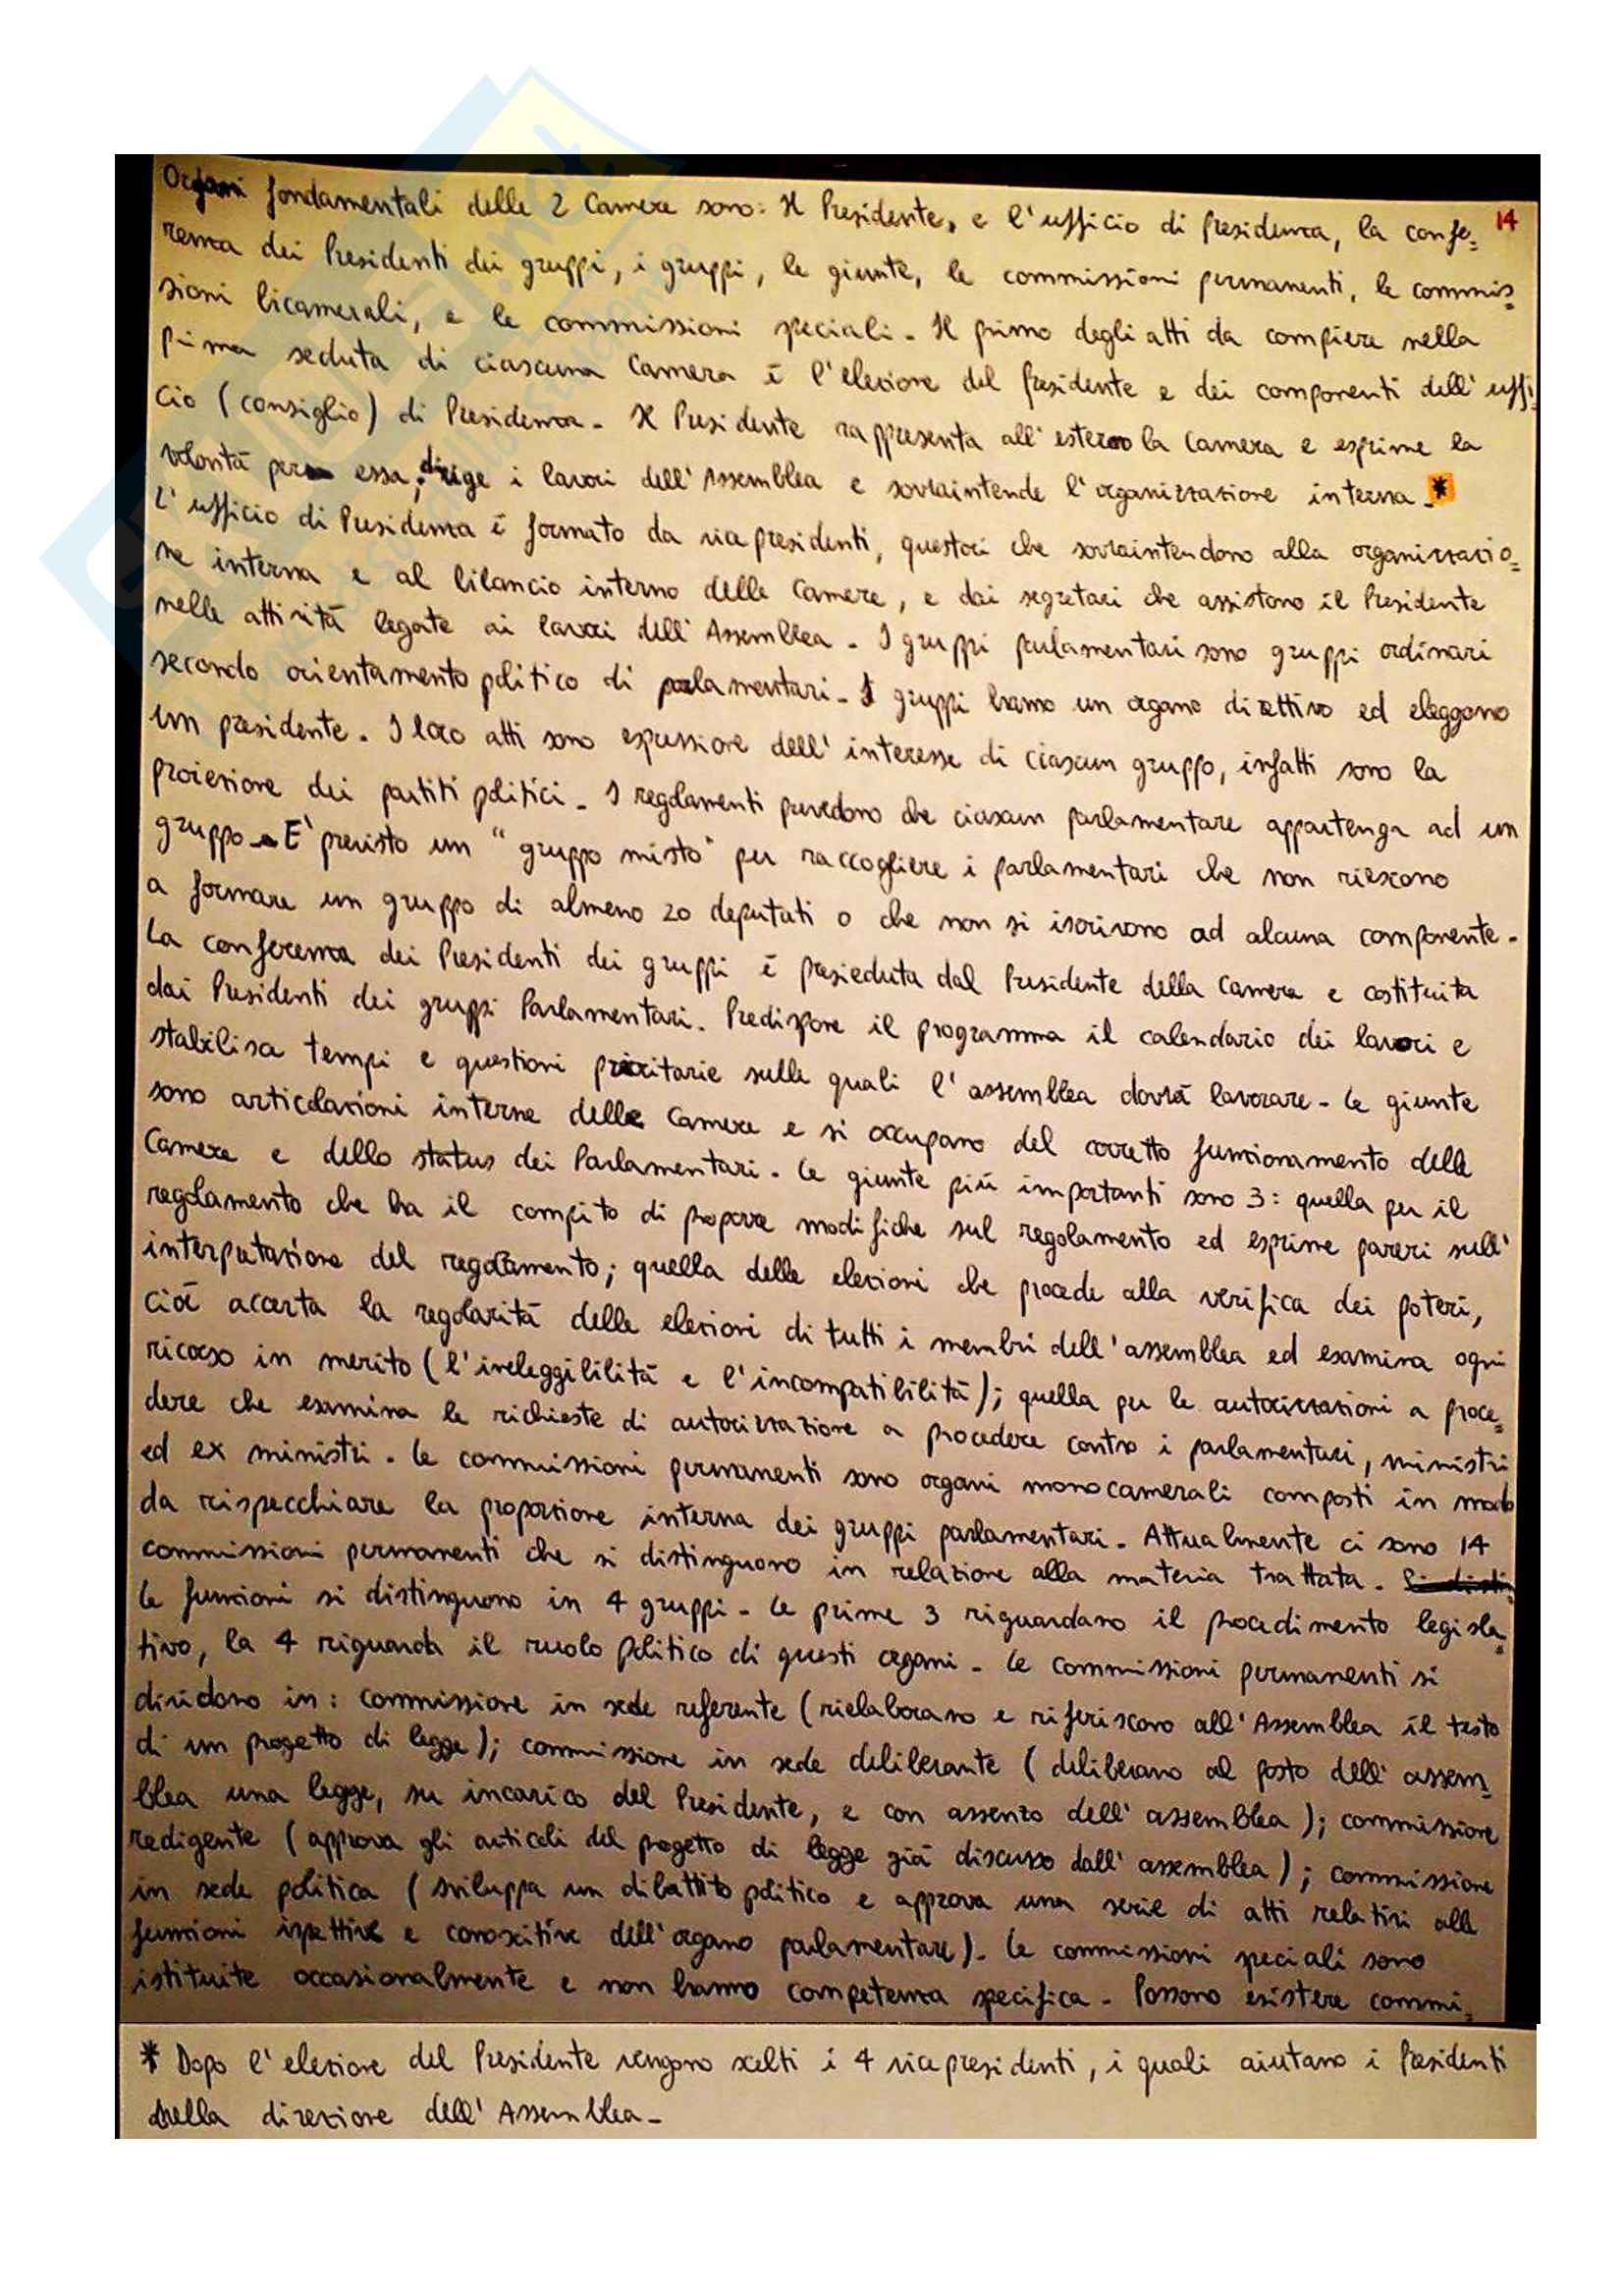 14
Organi fondamentali delle 2 Camere sono: Il Presidente, e l'ufficio di presidenza, la confe=
renza dei Presidenti dei gruppi, i gruppi, le giunte, le commissioni permanenti, le commis=
sioni bicamerali, e le commissioni speciali - Il primo degli atti da compiere nella
prima seduta di ciascuna Camera è l'elezione del presidente e dei componenti dell'uffi=
cio (consiglio) di Presidenza - Il Presidente rappresenta all'esterno la Camera e esprime la
volontà per essa; dirige i lavori dell'Assemblea e sovraintende l'organizzazione interna - *
L'ufficio di Presidenza è formato da vicepresidenti, questori che sovraintendono alla organizzazio=
ne interna e al bilancio interno delle Camere, e dai segretari che assistono il Presidente
nelle attività legate ai lavori dell'Assemblea - I gruppi parlamentari sono gruppi ordinari
secondo orientamento politico di parlamentari - I gruppi hanno un organo direttivo ed eleggono
un presidente. I loro atti sono espressione dell'interesse di ciascun gruppo, infatti sono la
proiezione dei partiti politici - I regolamenti prevedono che ciascun parlamentare appartenga ad un
gruppo - E' previsto un "gruppo misto" per raccogliere i parlamentari che non riescono
a formare un gruppo di almeno 20 deputati o che non si iscrivono ad alcuna componente -
La conferenza dei Presidenti dei gruppi è presieduta dal Presidente della Camera e costituita
dai Presidenti dei gruppi Parlamentari. Predispone il programma il calendario dei lavori e
stabilisa tempi e questioni prioritarie sulle quali l'assemblea dovrà lavorare - Le giunte
sono articolazioni interne delle Camere e si occupano del corretto funzionamento delle
Camere e dello status dei Parlamentari - Le giunte più importanti sono 3: quella per il
regolamento che ha il compito di proporre modifiche sul regolamento ed esprime pareri sull'
interpretazione del regolamento; quella delle elezioni che procede alla verifica dei poteri,
cioè accerta la regolarità delle elezioni di tutti i membri dell'assemblea ed esamina ogni
ricorso in merito (l'ineleggibilità e l'incompatibilità); quella per le autorizzazioni a proce=
dere che esamina le richieste di autorizzazione a procedere contro i parlamentari, ministri
ed ex ministri - Le commissioni permanenti sono organi monocamerali composti in modo
da rispecchiare la proporzione interna dei gruppi parlamentari - Attualmente ci sono 14
commissioni permanenti che si distinguono in relazione alla materia trattata -
Le funzioni si distinguono in 4 gruppi - Le prime 3 riguardano il procedimento legisla=
tivo, la 4 riguarda il ruolo politico di questi organi - Le commissioni permanenti si
dividono in: commissione in sede referente (rielaborano e riferiscono all'Assemblea il testo
di un progetto di legge); commissione in sede deliberante (deliberano al posto dell'assem=
blea una legge, su incarico del Presidente, e con assenzo dell'assemblea); commissione
redigente (approva gli articoli del progetto di legge già discusso dall'assemblea); commissione
in sede politica (sviluppa un dibattito politico e approva una serie di atti relativi alle
funzioni ispettive e conoscitive dell'organo parlamentare) - Le commissioni speciali sono
istituite occasionalmente e non hanno competenza specifica - Possono esistere commi=
* Dopo l'elezione del Presidente vengono scelti i 4 vicepresidenti, i quali aiutano i Presidenti
nella direzione dell'Assemblea -